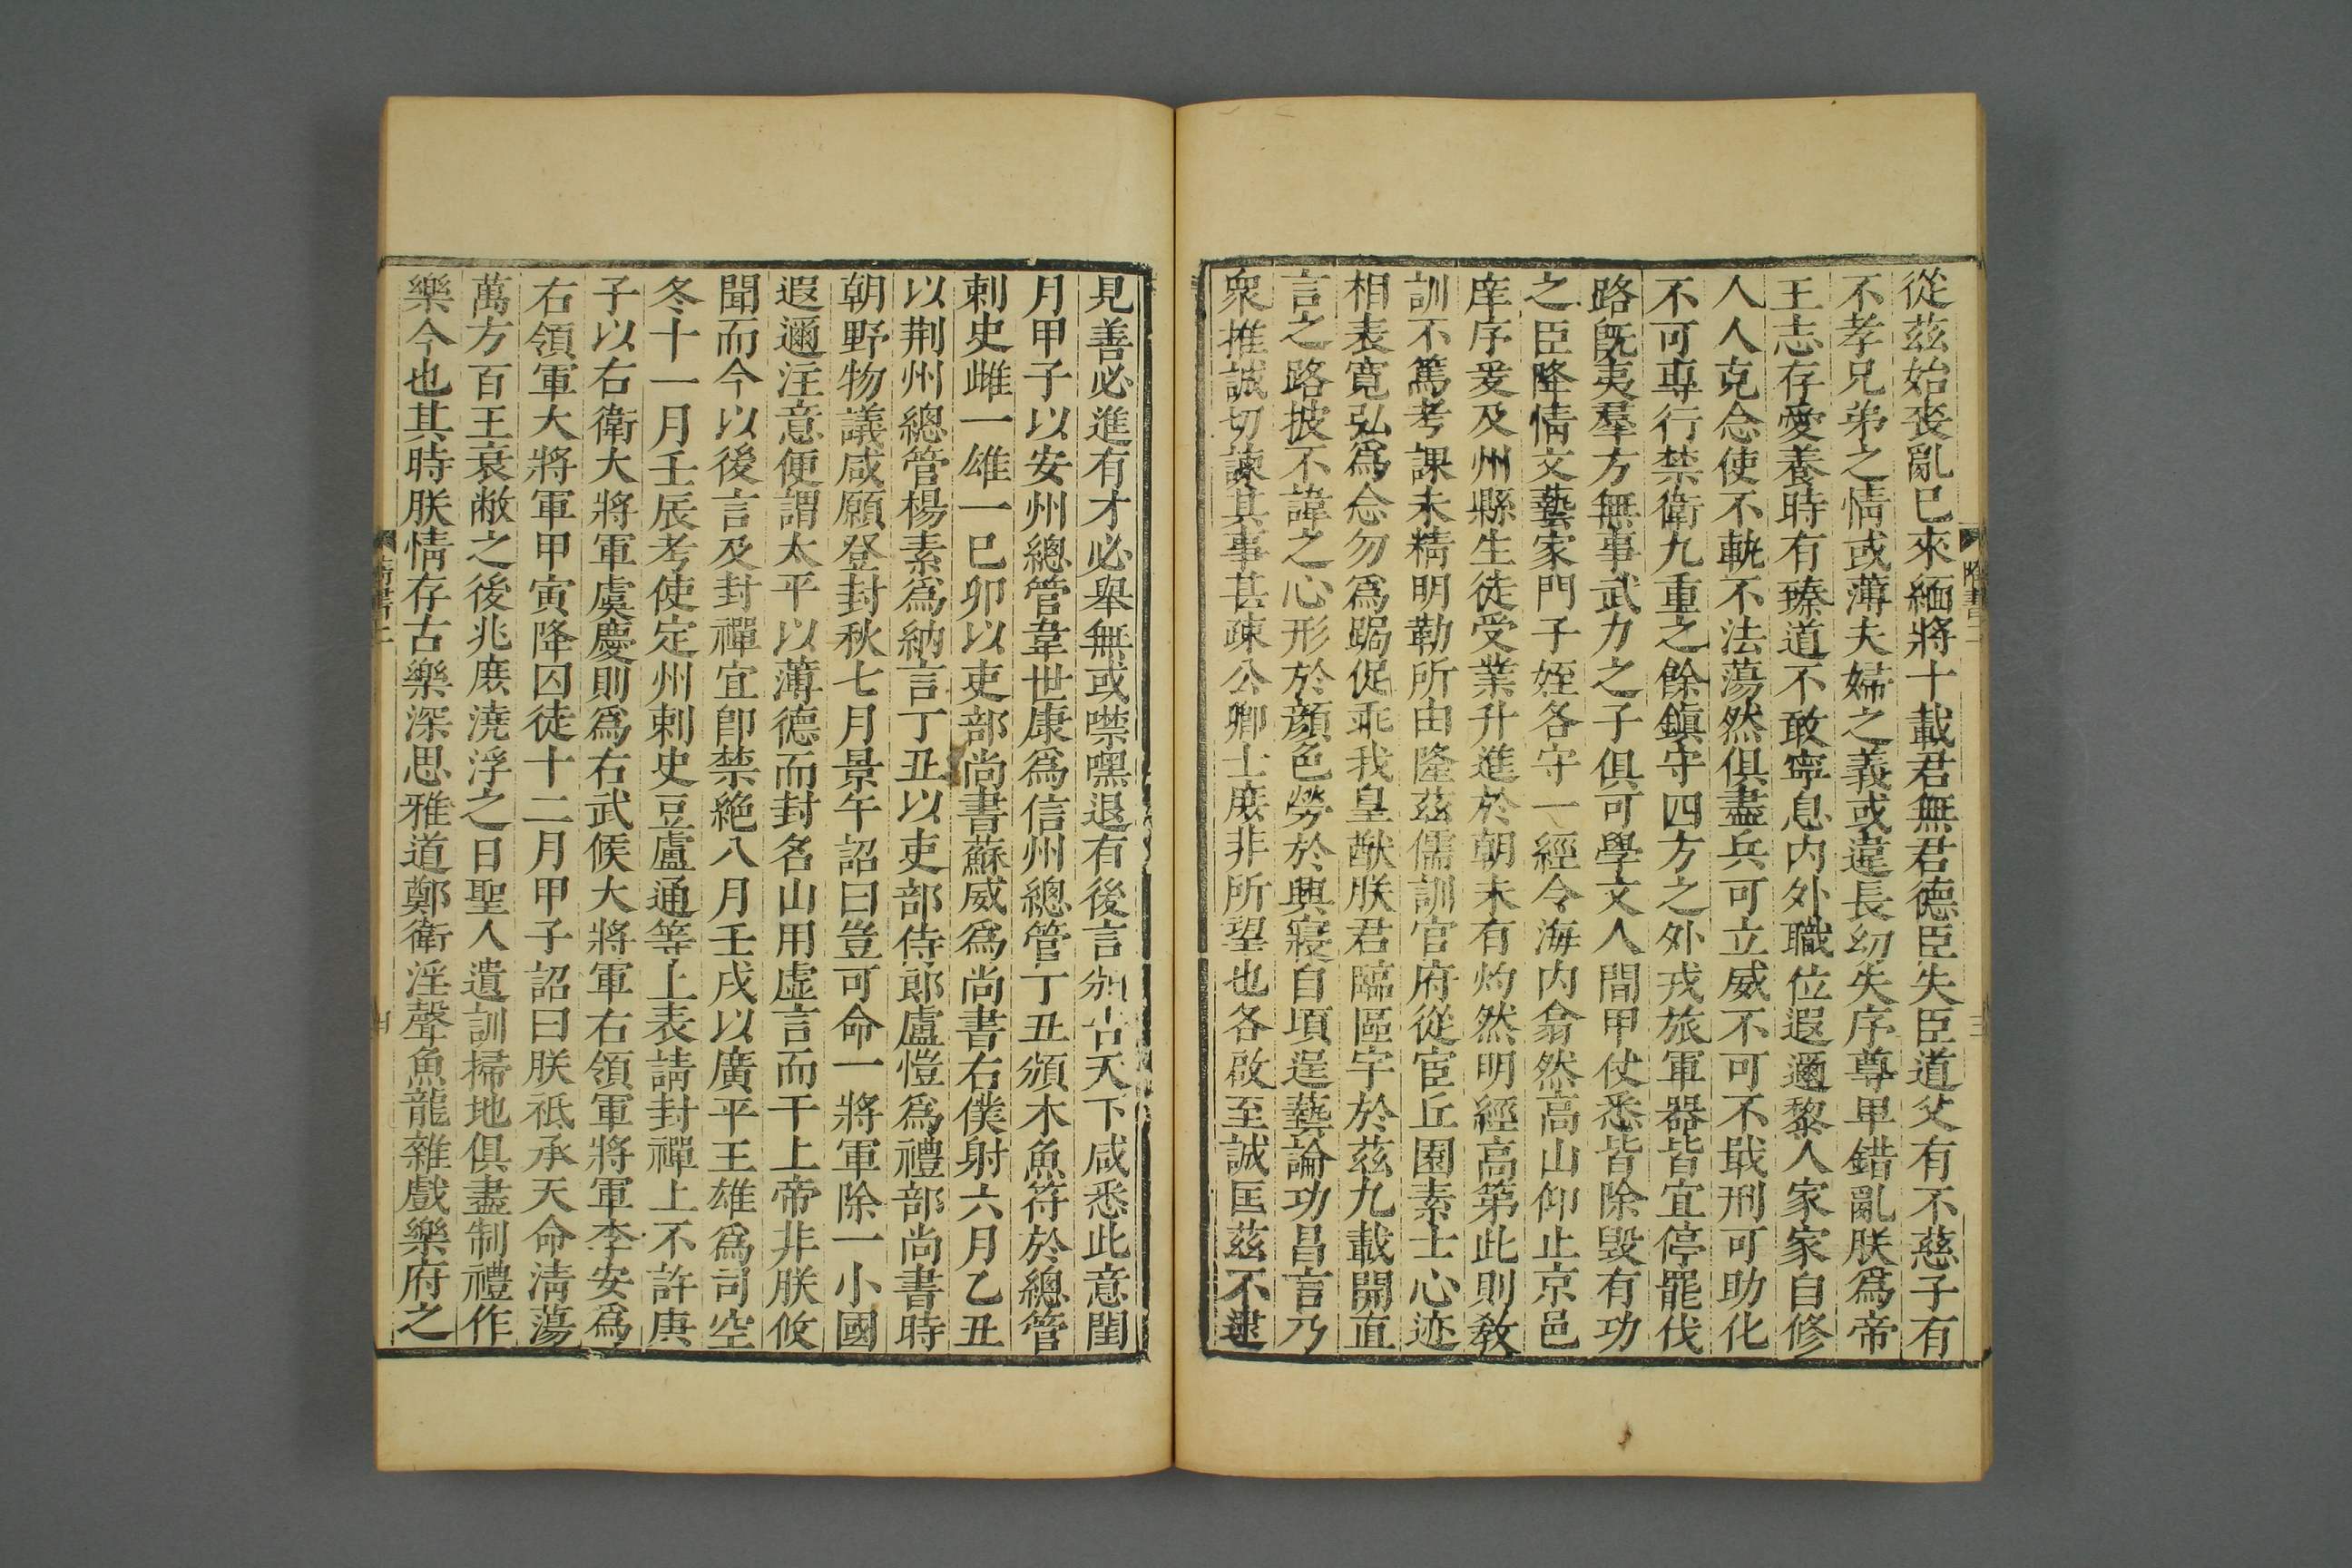 從茲始喪亂已來緬將十載君無君德臣失臣道父有不慈子有
不孝兄弟之情或薄夫婦之義或違長幼失序尊卑錯亂朕爲帝
王志存愛養時有臻道不敢寧息內外職位遐邇黎人家家自修
人人克念使不軌不法蕩然俱盡兵可立威不可不戢刑可助化
不可專行禁衛九重之餘鎭守四方之外戎旅軍器皆宜停罷伐
路旣夷羣方無事武力之子俱可學文人間甲仗悉皆除毀有功
之臣降情文藝家門子姪各守一經令海內翕然高山仰止京邑
庠序爰及州縣生徒受業升進於朝未有灼然明經高第此則敎
訓不篤考課未精明勒所由隆茲儒訓官府從宦丘園素士心迹
相表寛弘爲念勿爲跼促乖我皇猷朕君臨區宇於茲九載開直
言之路披不諱之心形於顏色勞於興寢自項逞藝論功昌言乃
衆推誠切諫其事甚疎公卿士庶非所望也各啟至誠匡茲不逮
見善必進有才必舉無或噤嘿退有後言頒告天下咸悉此意閏
月甲子以安州總管韋世康爲信州總管丁丑頒木魚符於總管
刺史雌一雄一巳卯以吏部尚書蘇威爲尚書右僕射六月乙丑
以荆州總管楊素爲納言丁丑以吏部侍郞盧愷爲禮部尚書時
朝野物議咸願登封秋七月景午詔曰豈可命一將軍除一小國
遐邇注意便謂太平以薄德而封名山用虛言而干上帝非朕攸
聞而今以後言及封禪宜卽禁絶八月壬戌以廣平王雄爲司空
冬十一月壬辰考使定州刺史豆盧通等上表請封禪上不許庚
子以右衛大將軍虞慶則爲右武候大將軍右領軍將軍李安爲
右領軍大將軍甲寅降囚徒十二月甲子詔曰朕祇承天命淸蕩
萬方百王衰敝之後兆庶澆浮之日聖人遺訓掃地俱盡制禮作
樂今也其時朕情存古樂深思雅道鄭衛淫聲魚龍雜戲樂府之